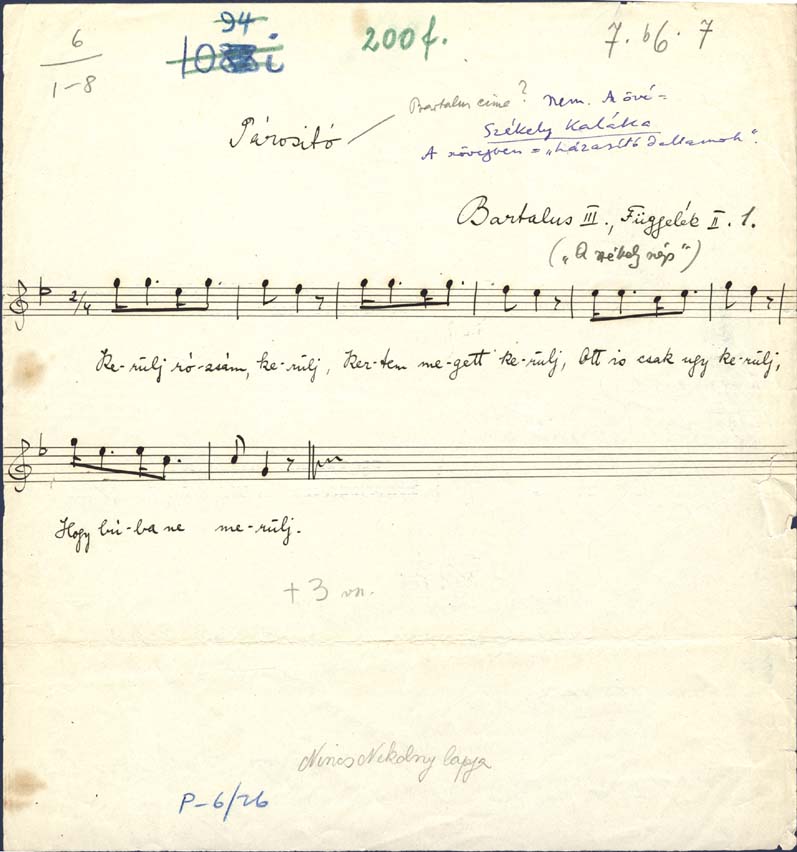 6
1-8
94
200 f.
7. b6. 7
Bartalus címe? Nem. Az övé =
Székely Kaláka
Párosító
A szövegben = „házasító dallamok".
Bartalus III., Függelék II. 1.
(„A székely nép")
2/4
Ke-rülj ró-zsám, ke-rülj, Ker-tem me-gett ke-rülj, Ott is csak ugy ke-rülj,
Hogy bú-ba ne me-rülj.
+ 3 vsz.
Nincs Nekolny lapja
P-6/26